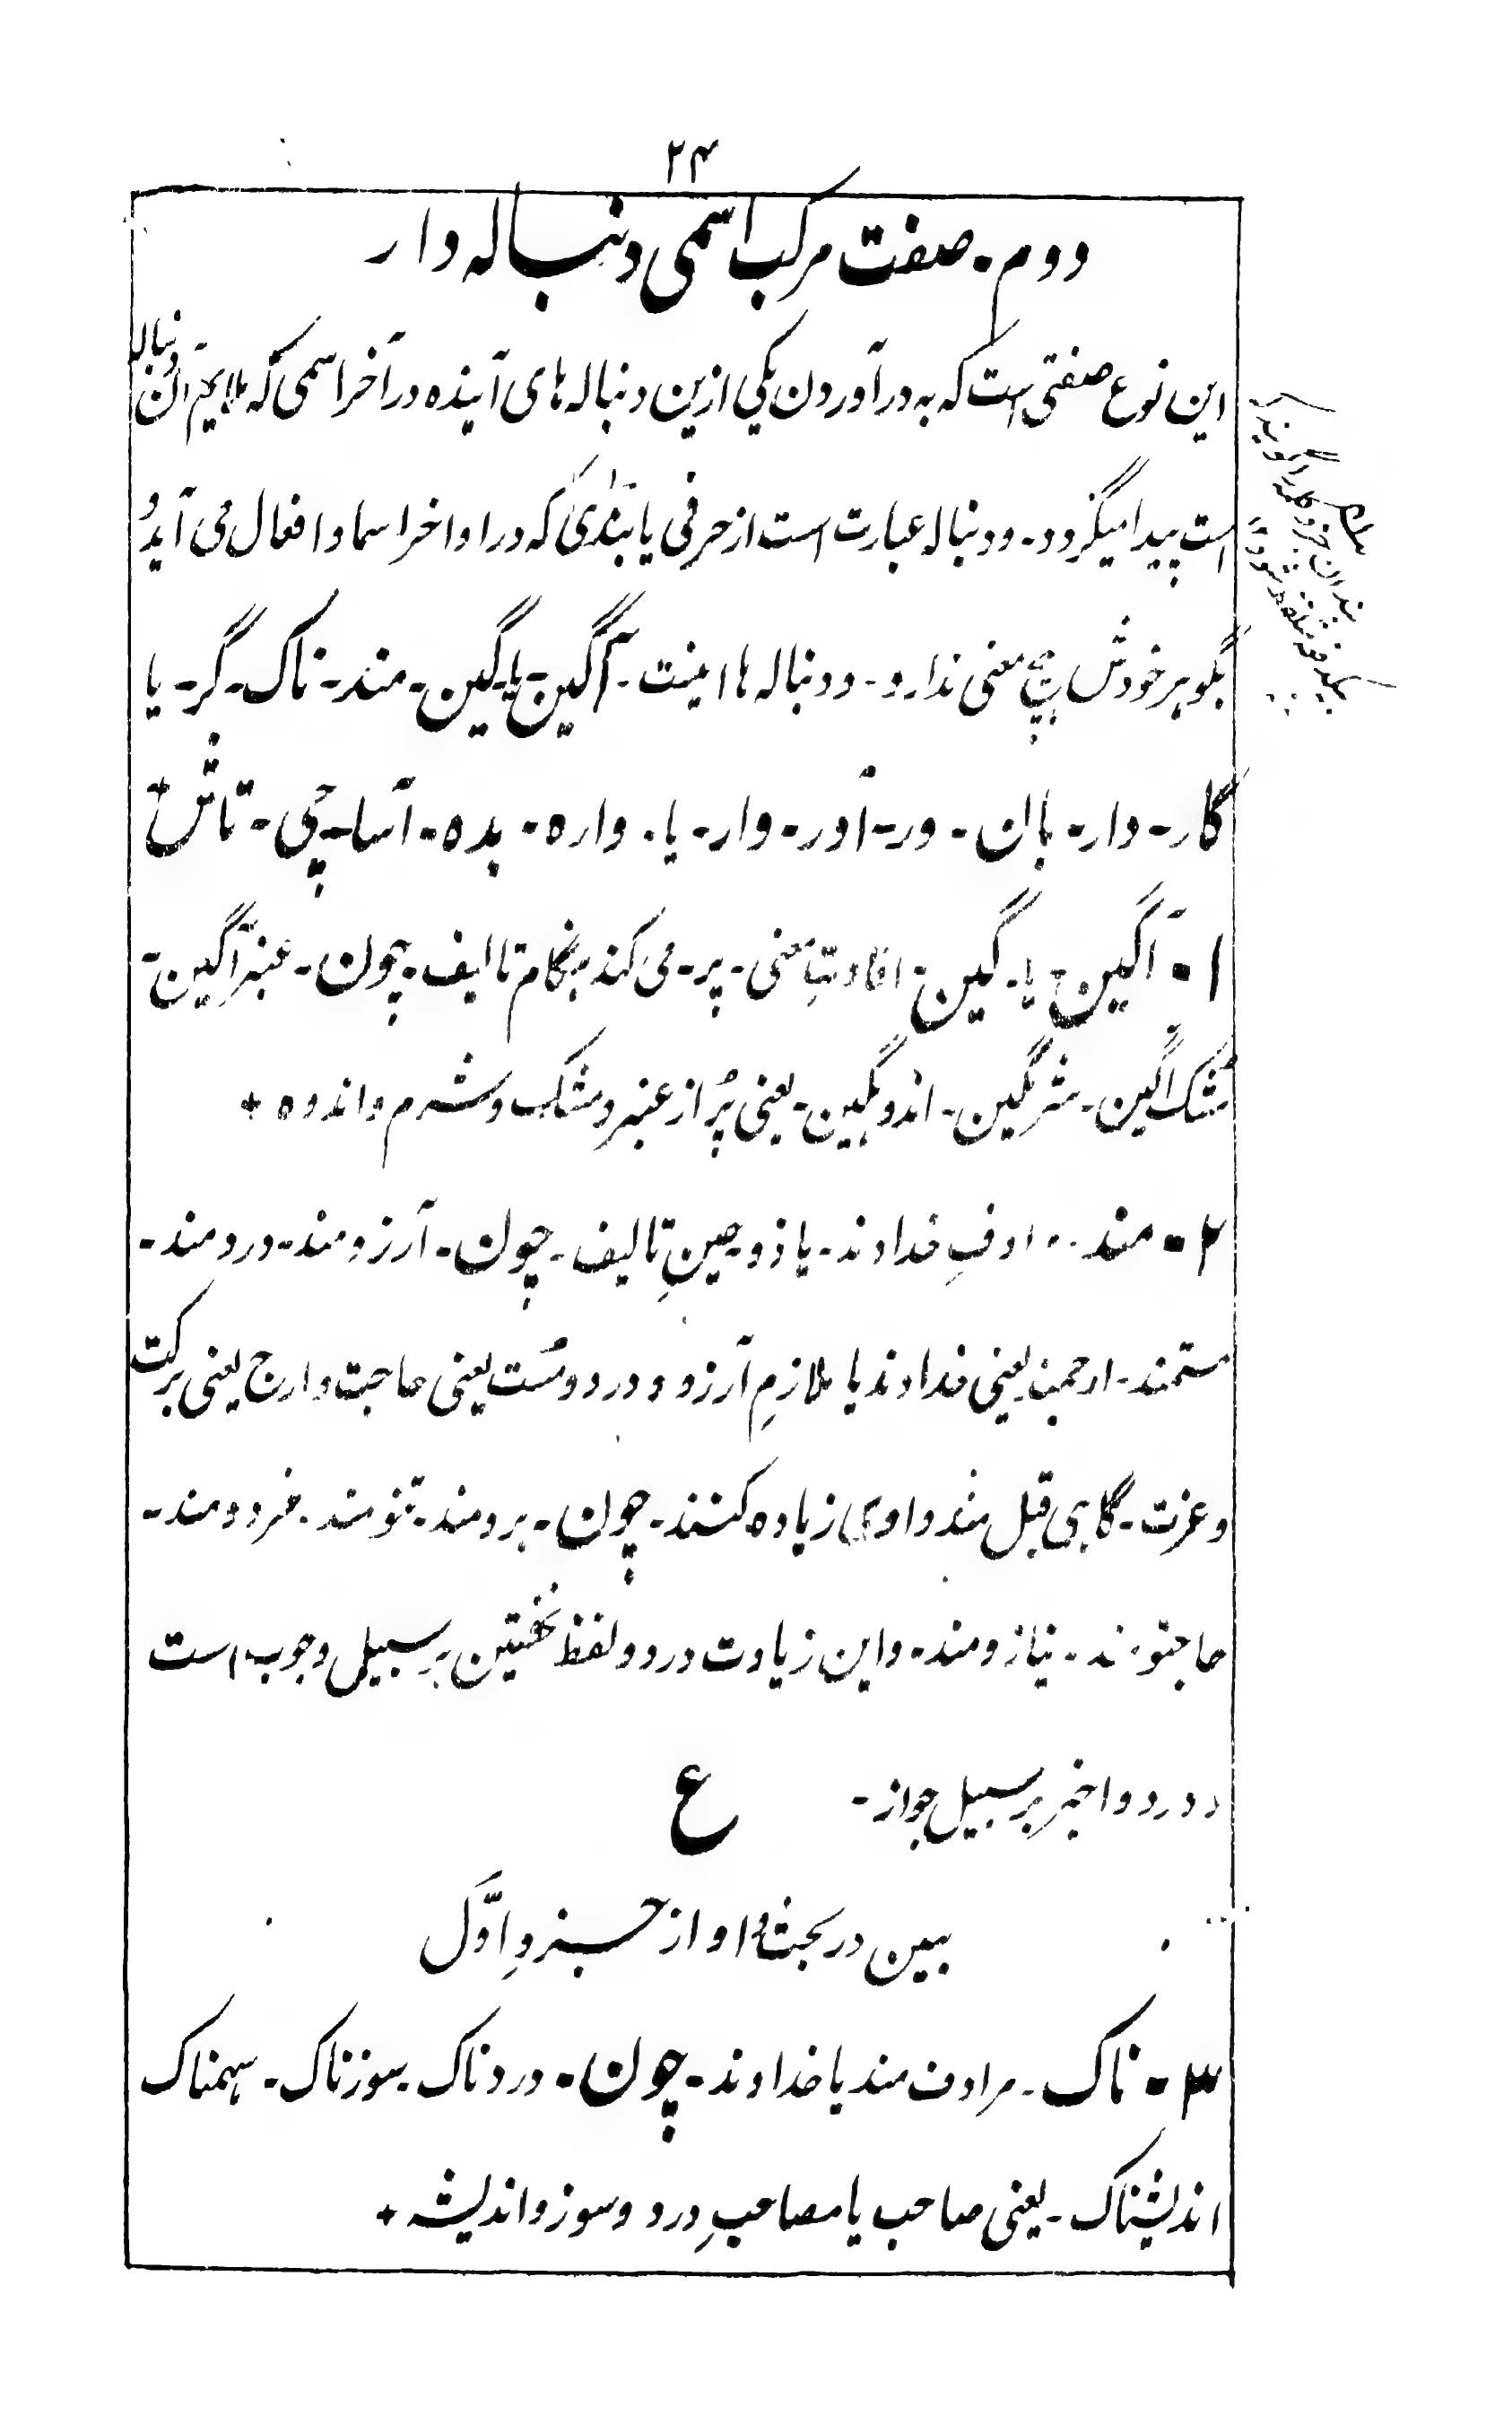 ۲۴
دوم - صفت مرکب اسمی دنباله دار
این نوع صفتی است که به درآوردن یکی ازین دنباله های آینده در آخر اسمی که ملایم آن دنباله
است پیدا میگردد - و دنباله عبارت است از حرفی یا بندی که در اواخر اسما و افعال می آید و
بگوهر خودش هیچ معنی ندارد - و دنباله ها اینست - آگین - یا - گین - مند - ناک - گر - یا
گار - دار - بان - ور - آور - وار - یا - واره - بده - آسا - چی - تاش
۱ - آگین - یا - گین - افادت معنی - پر - می کند هنگام تالیف - چون - عنبر آگین -
مشک آگین - شرمگین - اندوهگین - یعنی پُر از عنبر و مشک و شرم و اندوه +
۲ - مند - مرادفِ خداوند - یا ذو - حینِ تالیف - چون - آرزومند - دردمند -
مستمند - ارجمند یعنی خداوند یا ملازمِ آرزو و درد و مُست یعنی حاجت و ارج یعنی برکت
و عزت - گاهی قبل مند واوی زیاده کنند - چون - برومند - تنومند - خردومند -
حاجتومند - نیازومند - و این زیادت در دو لفظ نخستین بر سبیل وجوب است
و در دو اخیر بر سبیل جواز -
ع
ببین در بحث واو از جزوِ اوّل
۳ - ناک - مرادف مند یا خداوند - چون - دردناک - سوزناک - سهمناک
اندیشناک - یعنی صاحب یا مصاحبِ درد و سوز و اندیشه +
بند آن جزو کلمه را گویند که
بیکدفعه تلفظ شود ۱۲